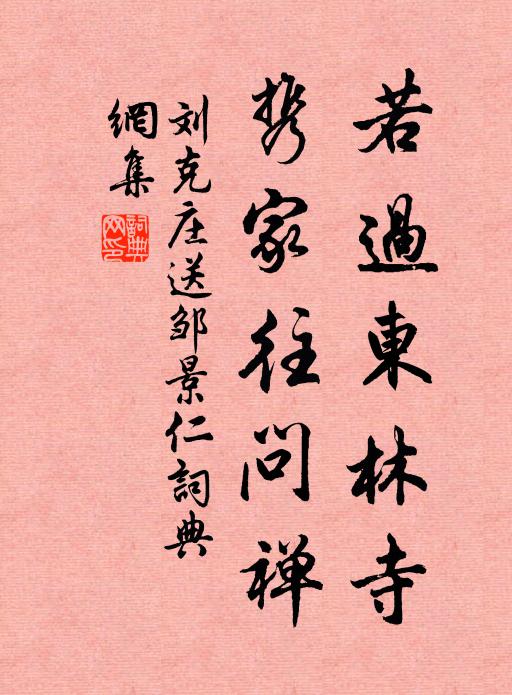 若過東林寺
携家往問禅
刘克庄送邹景仁詞典
網集
詞典網印